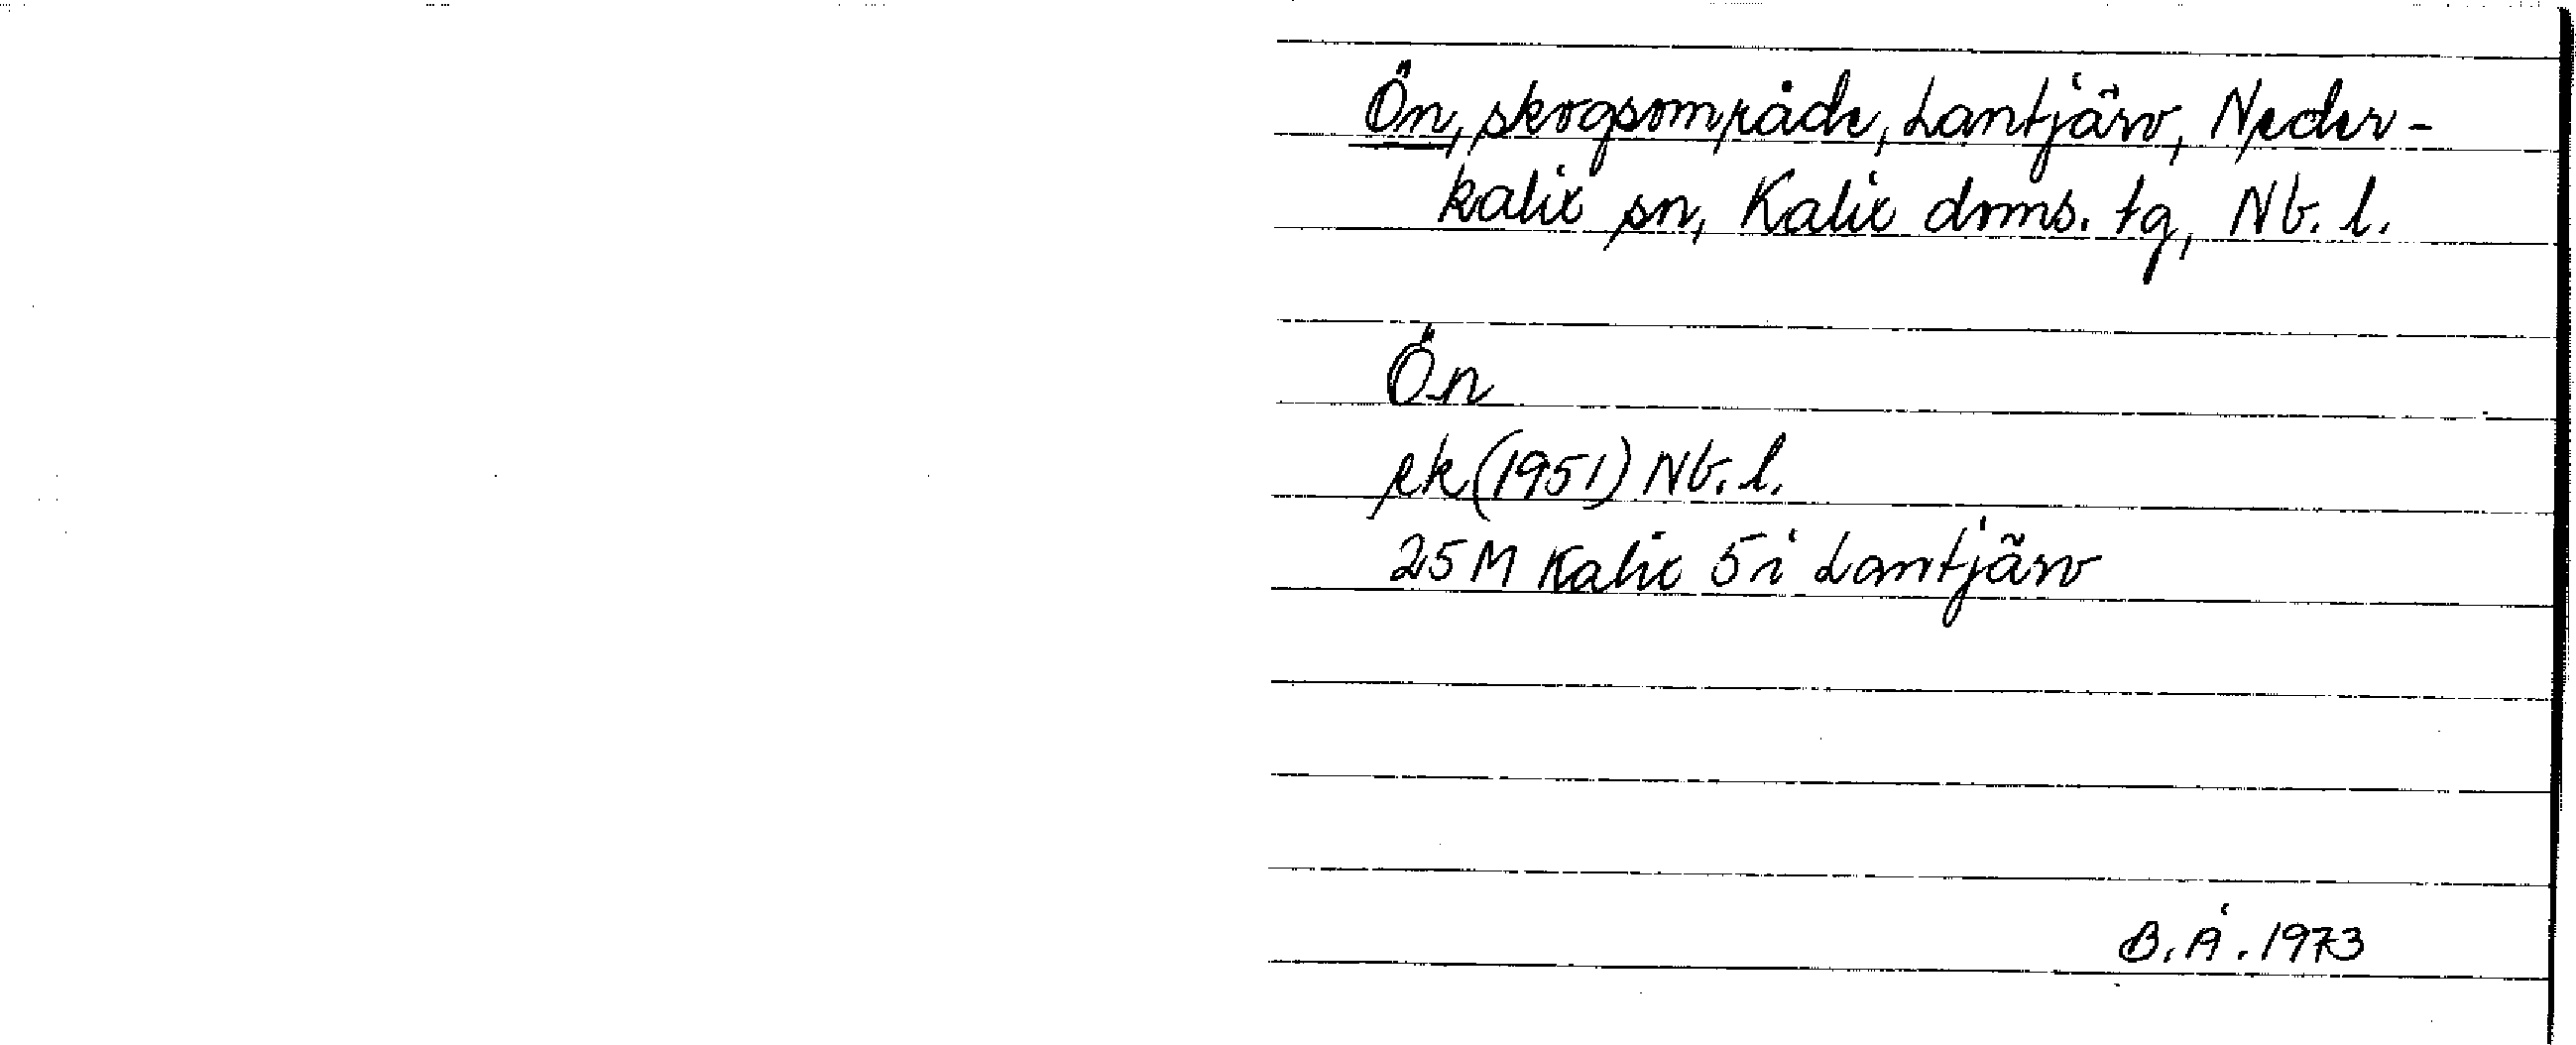 Ön, skogsområde, Lantjärv, Neder-
kalix sn, Kalix doms. tg, Nb. l.
Ön
rk (1951) Nb. l.
25 M Kalix 5 i Lantjärv
B. Å. 1973